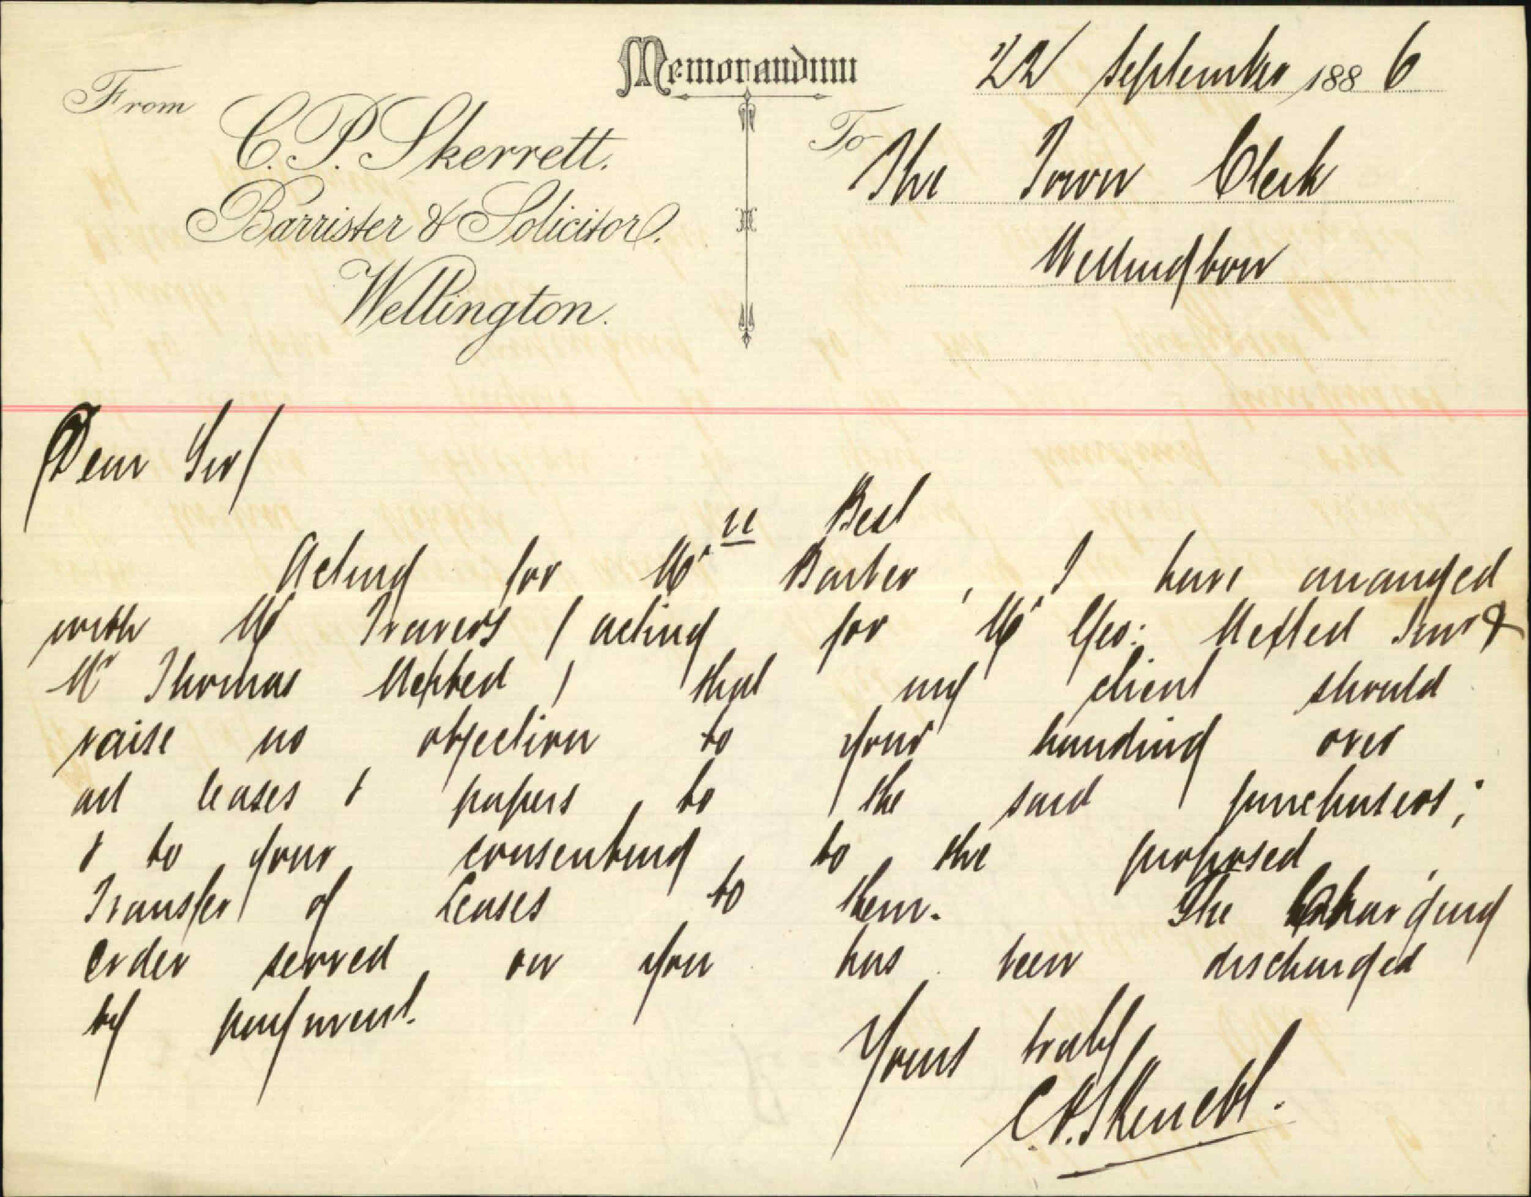 Memorandum
22 September 1886
From
C. P. Skerrett.
Barrister & Solicitor.
Wellington.
To
The Town Clerk
Wellington
Dear Sir/
re Best
Acting for Mr Barber, I have arranged
with Mr Travers (acting for Mr Geo: &
Mr Thomas ) that my client should
raise no objection to your handing over
all leases & papers to the said purchasers;
& to your consenting to the proposed
Transfer of Leases to them. The charging
order served on you has been discharged
by payment.
Yours truly
C. P. Skerrett.